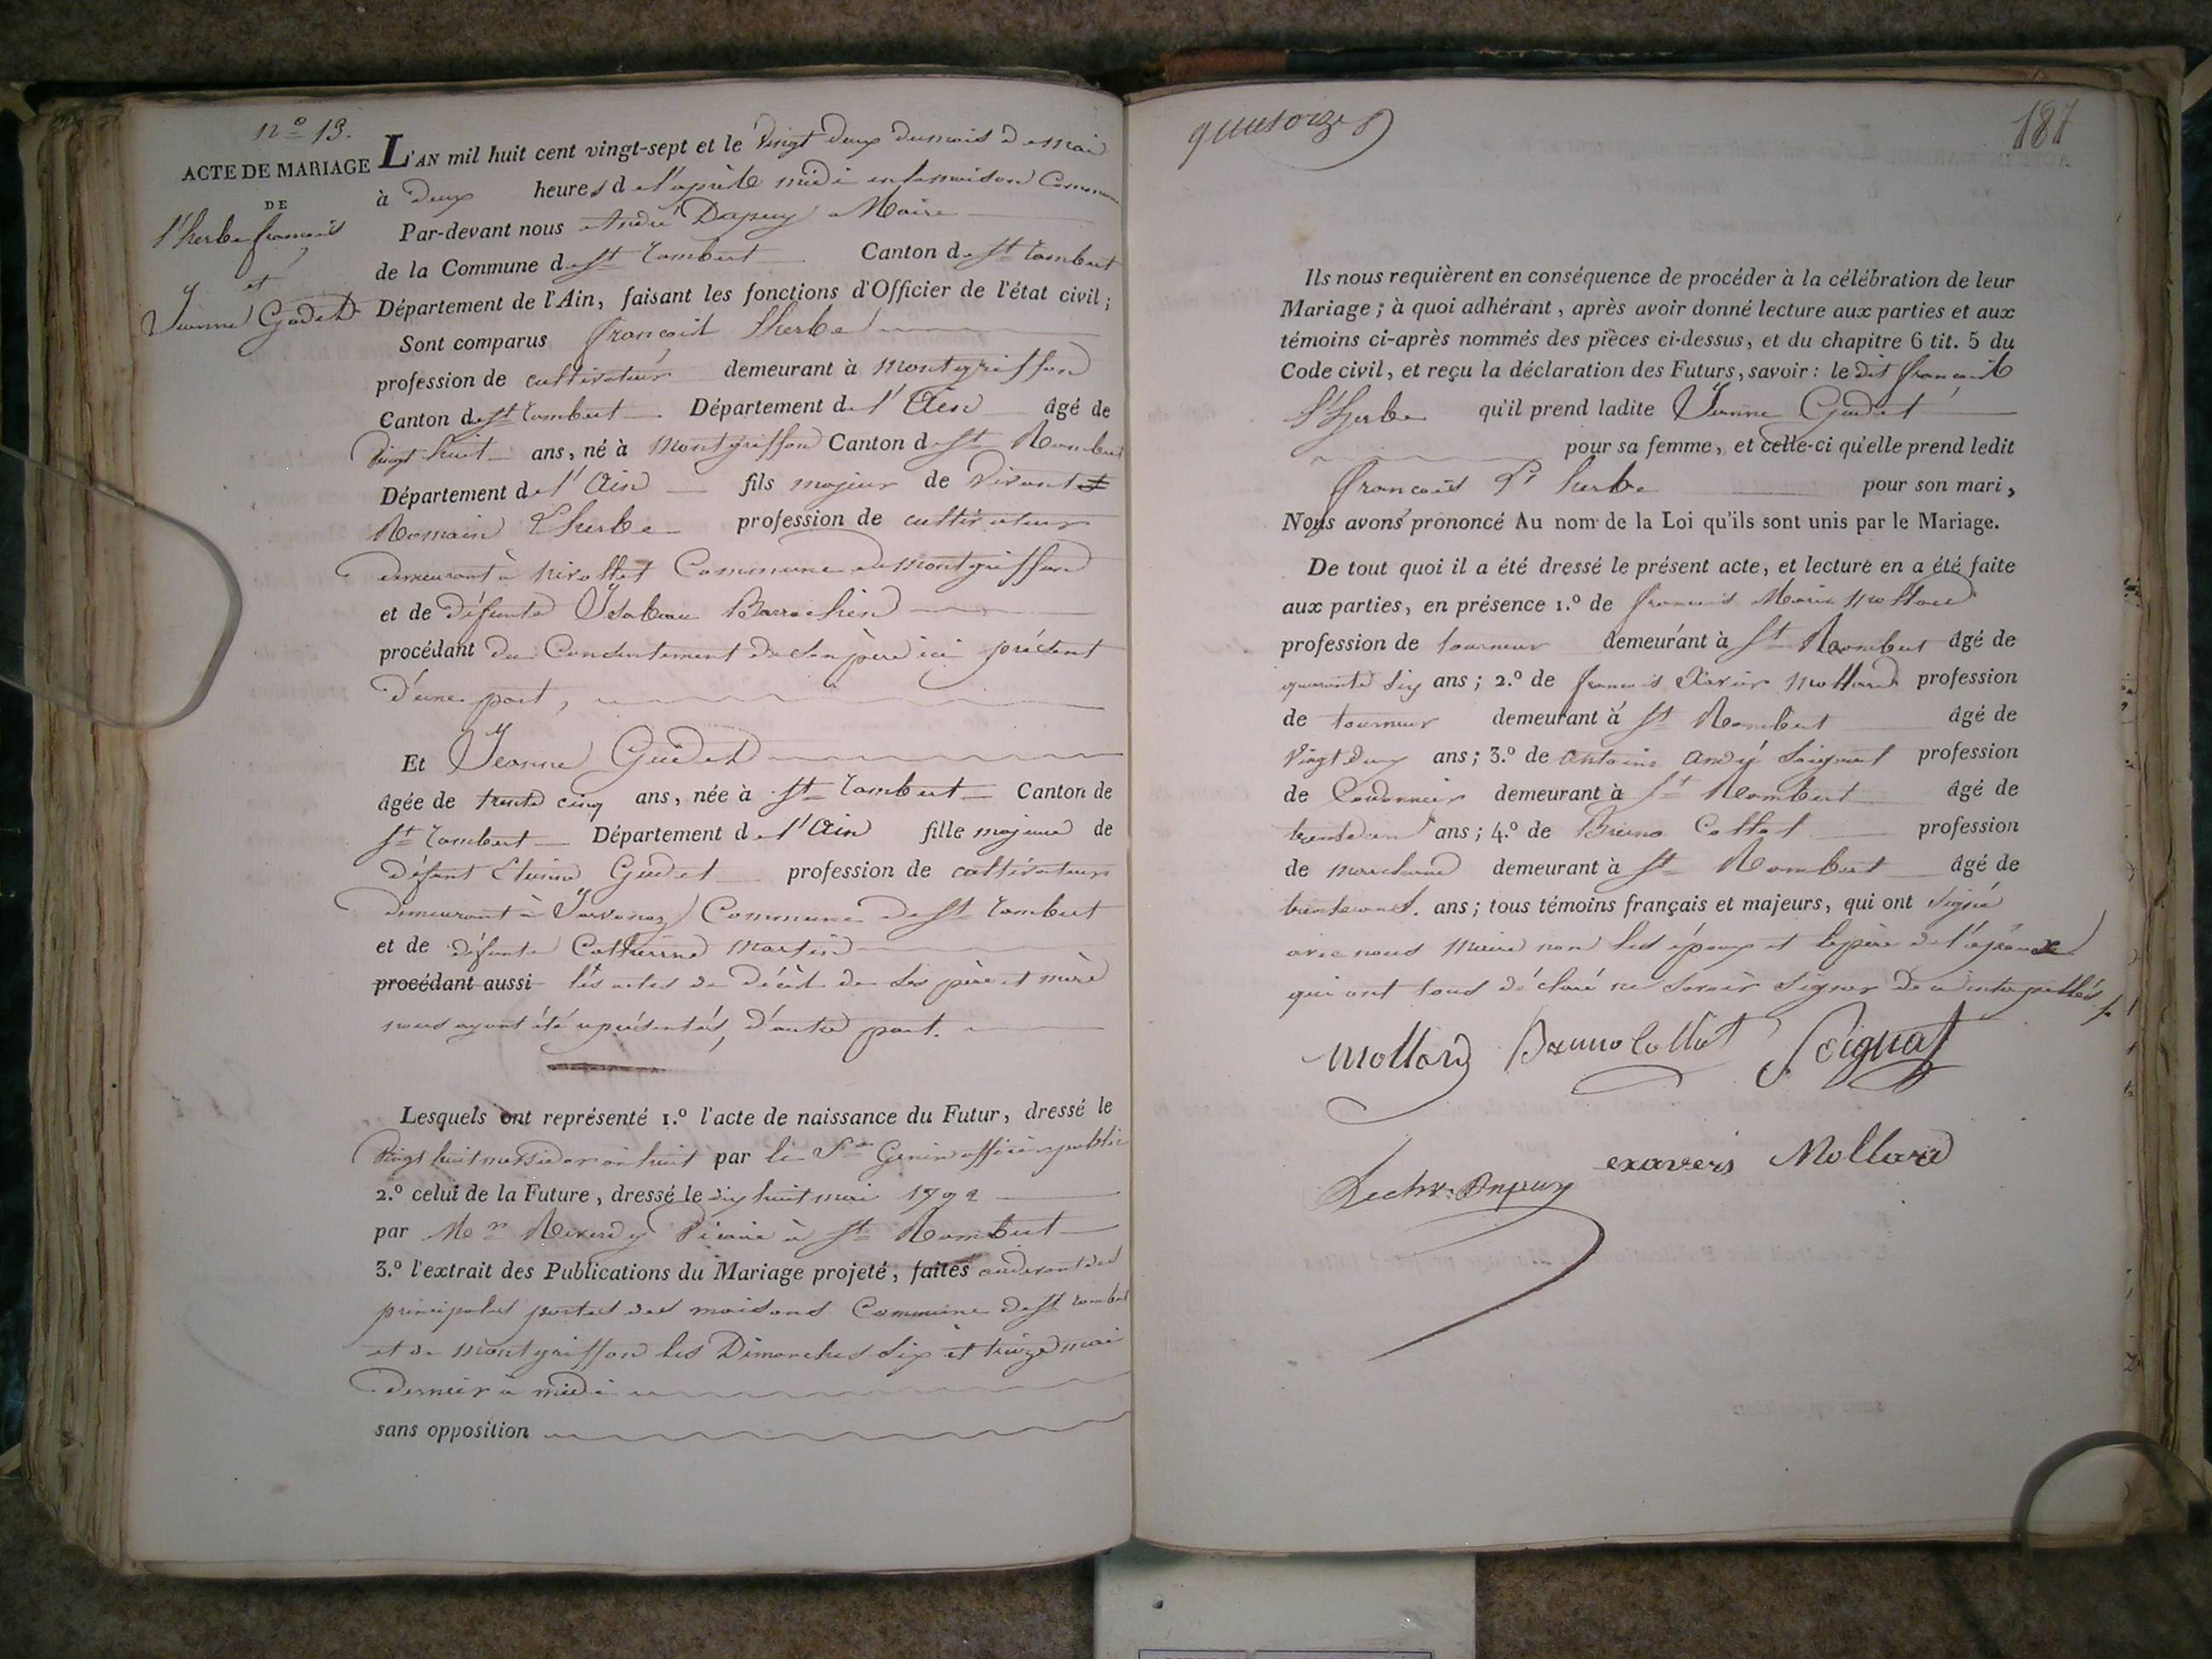 n.o 13.
ACTE DE MARIAGE
DE
l'herbe françois
et
Jeanne Gudet
L'AN mil huit cent vingt-sept et le vingt deux du mois de mai
à deux heures de l'après midi en la maison Commune
Par-devant nous André Dupuy Maire
de la Commune de St Rambert Canton de St Rambert
Département de l'Ain, faisant les fonctions d'Officier de l'état civil;
Sont comparus françois Lherbe
profession de cultivateur demeurant à montgriffon
Canton de St Rambert Département de l'Ain âgé de
vingt huit ans, né à Montgriffon Canton de St Rambert
Département de l'Ain fils majeur de vivant
Romain Lherbe profession de cultivateur
demeurant à nivollet Commune de montgriffon
et de défunte Isabeau Barrachin
procédant du Consentement de son père ici présent
d'une part,
Et Jeanne Gudet
âgée de trente cinq ans, née à St Rambert Canton de
St Rambert Département de l'Ain fille majeure de
défunt Etienne Gudet profession de cultivateur
demeurant à Commune de St Rambert
et de défunte Catherine Martin
procédant aussi les actes de décès de ses père et mère
nous ayant été représentés, d'autre part.
Lesquels ont représenté 1.o l'acte de naissance du Futur, dressé le
vingt huit messidor an huit par le Sr Genin officier public
2.o celui de la Future, dressé le dix huit mai 1792
par Mr vicaire à St Rambert
3.o l'extrait des Publications du Mariage projeté, faites au devant des
principales portes des maisons Commune de St Rambert
et de montgriffon les Dimanches six et treize mai
dernier à midi
sans opposition
quatorze
187
Ils nous requièrent en conséquence de procéder à la célébration de leur
Mariage; à quoi adhérant, après avoir donné lecture aux parties et aux
témoins ci-après nommés des pièces ci-dessus, et du chapitre 6 tit. 5 du
Code civil, et reçu la déclaration des Futurs, savoir: le dit françois
L'herbe qu'il prend ladite Jeanne Gudet
pour sa femme, et celle-ci qu'elle prend ledit
françois L'herbe pour son mari,
Nous avons prononcé Au nom de la Loi qu'ils sont unis par le Mariage.
De tout quoi il a été dressé le présent acte, et lecture en a été faite
aux parties, en présence 1.o de françois Marie Mollard
profession de tourneur demeurant à St Rambert âgé de
quarante six ans; 2.o de françois Xavier Mollard profession
de tourneur demeurant à St Rambert âgé de
vingt deux ans; 3.o de antoine André Seignat profession
de Cordonnier demeurant à St Rambert âgé de
trente un ans; 4.o de Bruno Collet profession
de marchand demeurant à St Rambert âgé de
ans; tous témoins français et majeurs, qui ont signé
avec nous Maire non les époux et le père de l'époux
qui ont tous déclaré ne savoir signer de ce interpellés
Mollard Bruno Collet Seignat
exavers Mollard
Dupuy